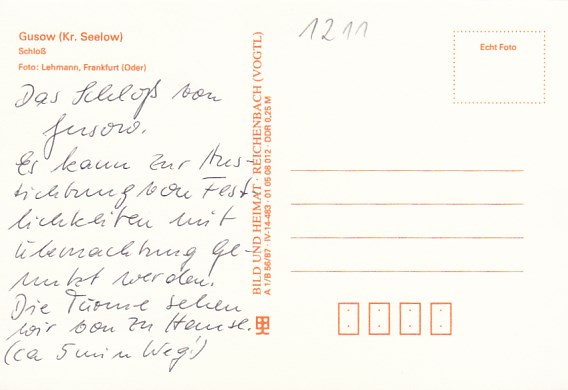 Gusow (Kr. Seelow)
Schloß
Foto: Lehmann, Frankfurt (Oder)
Das Schloß von
Gusow.
Es kann zur Aus-
richtung von Fest-
lichkeiten mit
Übernachtung ge-
nutzt werden.
Die Türme sehen
wir von zu Hause.
(ca 5 min Weg!)
BILD UND HEIMAT · REICHENBACH (VOGTL)
A 1/B 56/87 · IV-14-483 · 01 05 08 012 · DDR 0,25 M
1211
Echt Foto